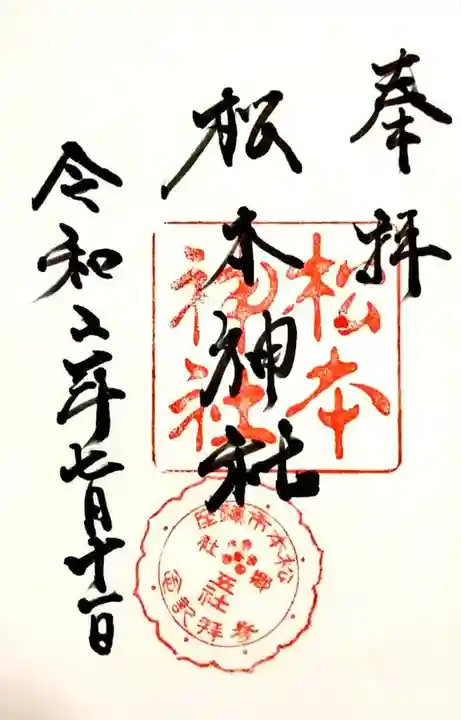 奉拝
松本神社
令和二年七月十一日
松本
神社
松本市鎮座
郷社
五社
参拝記念